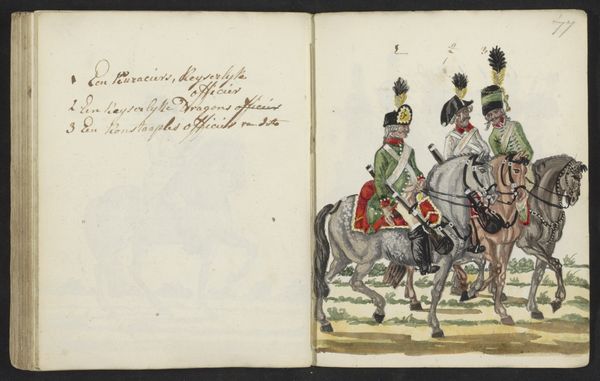 1 Een Kuraciers, Keyserlyke
officier
2 Een Keyserlyke Dragons officier
3 Een Konstaaples officier van dito
1 2 3
77